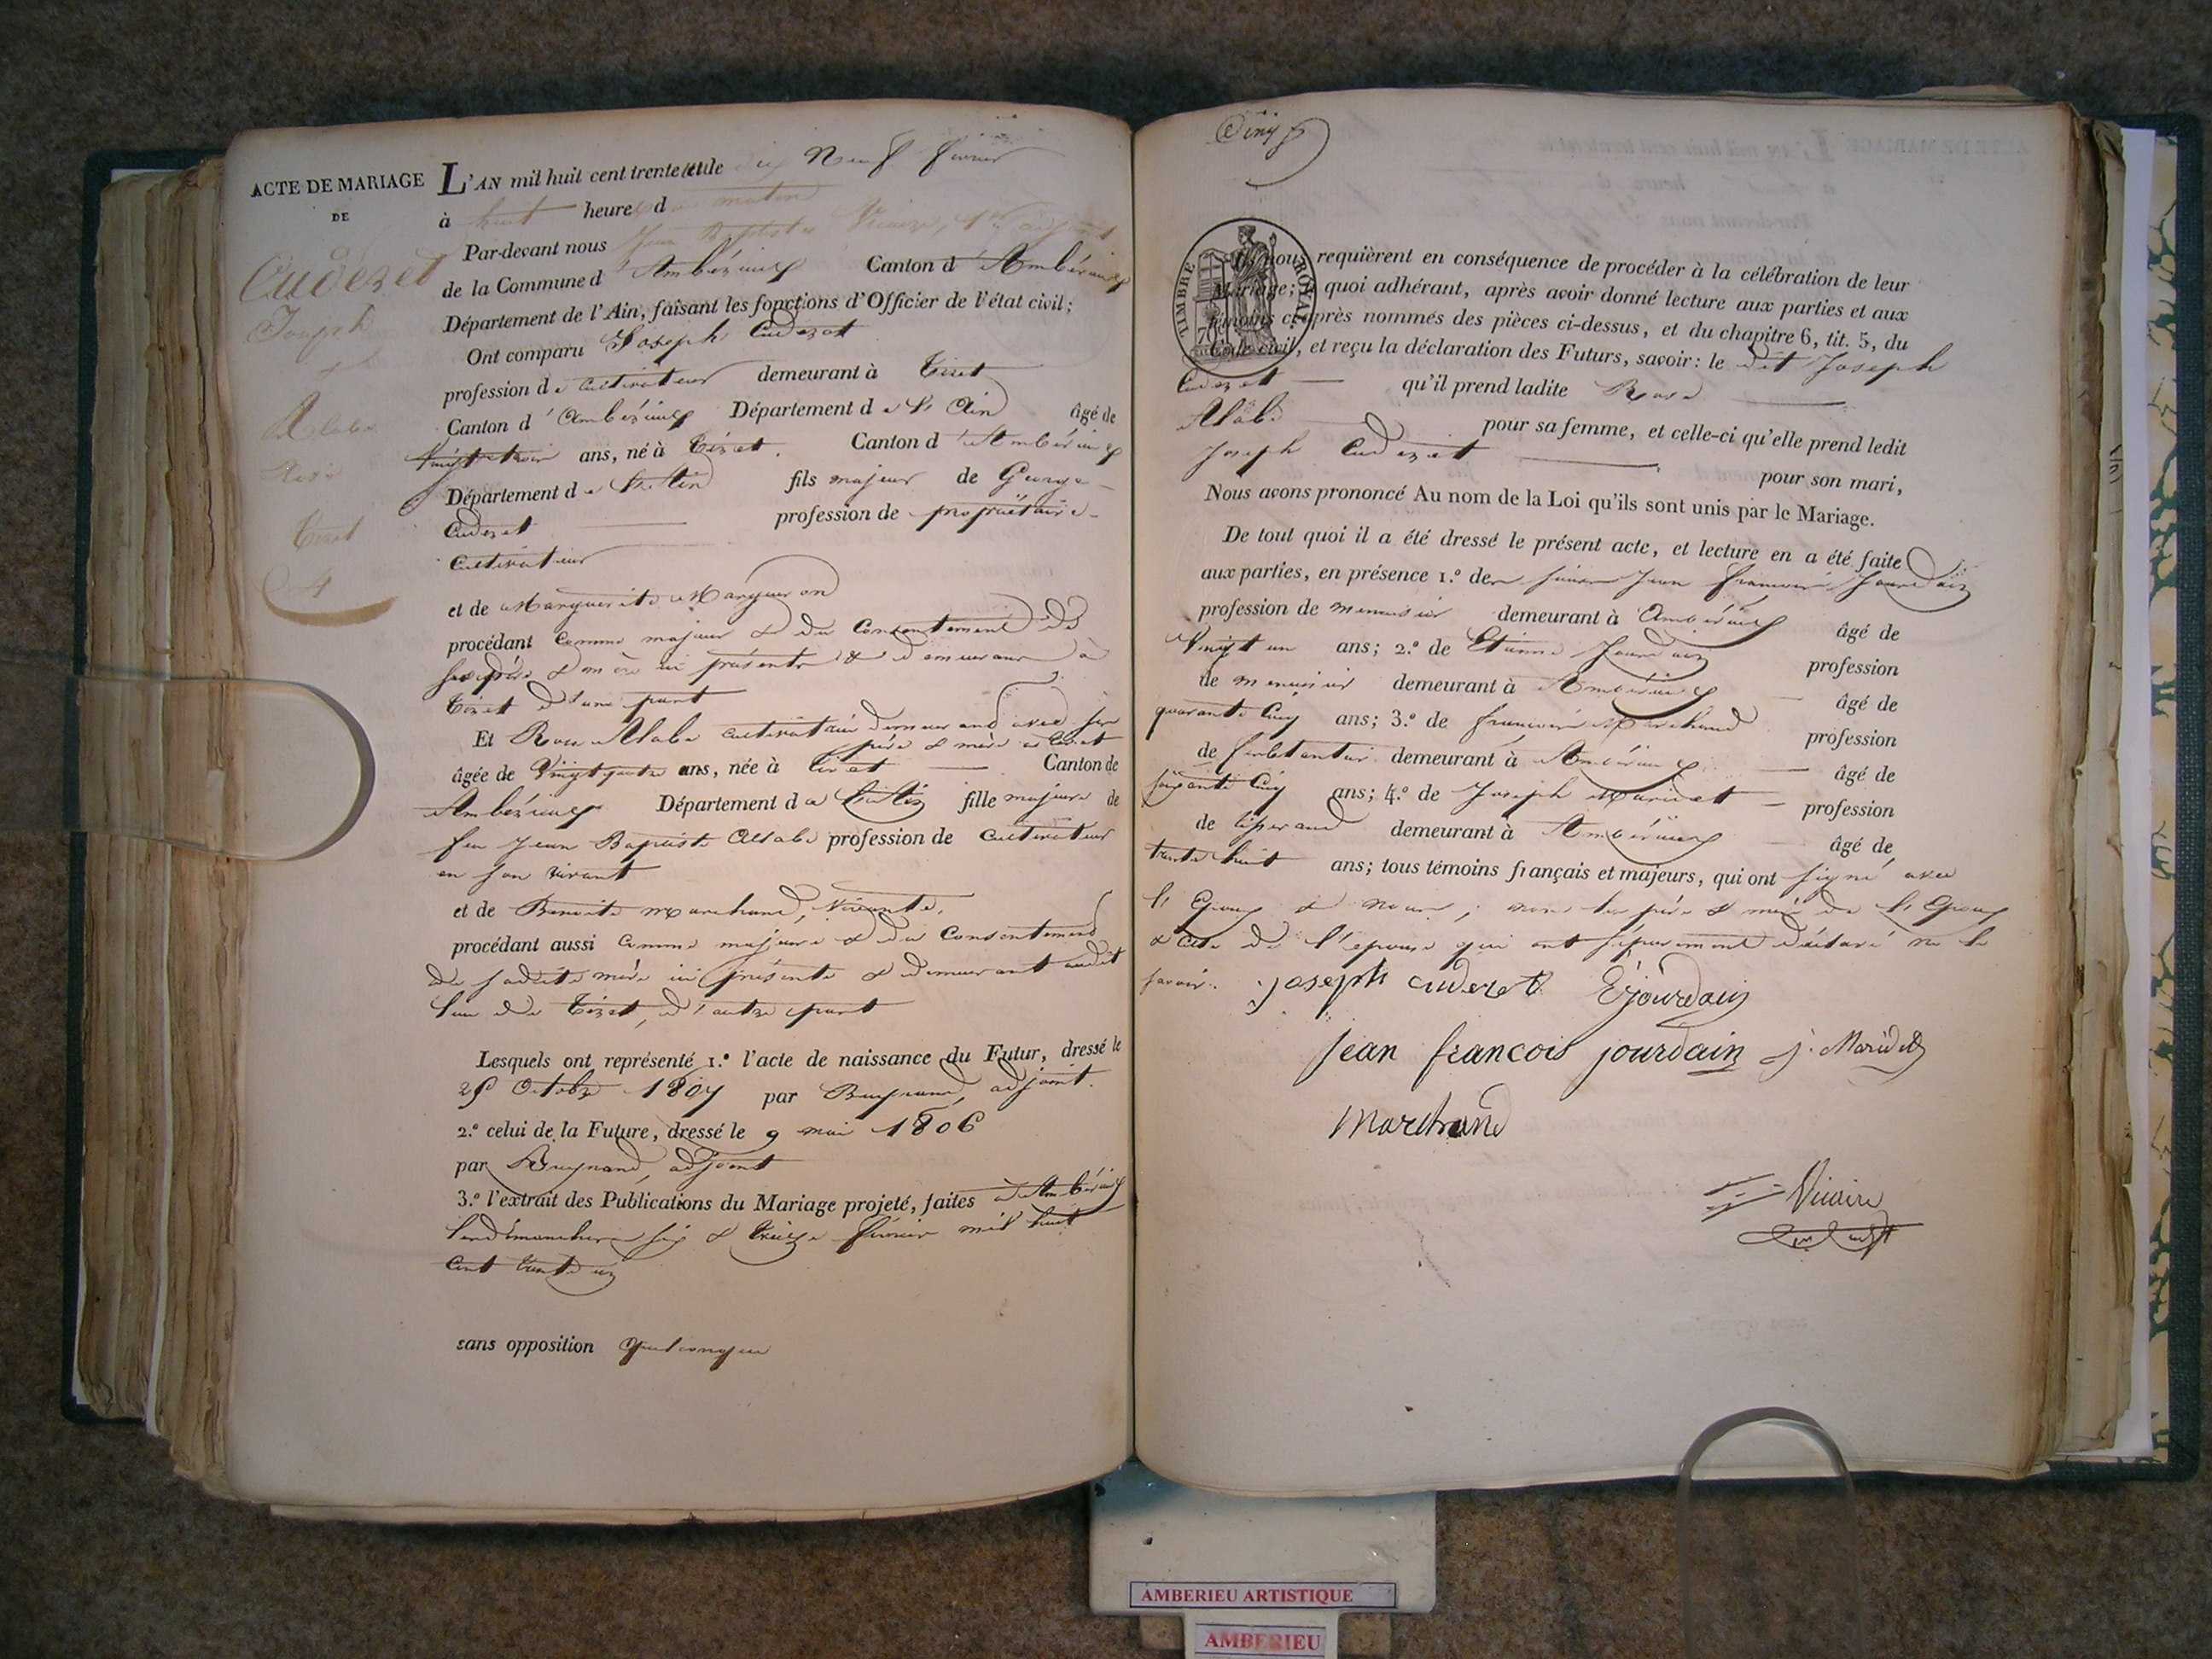 ACTE DE MARIAGE
DE
Cuderet
Joseph
&
Alabe
Rose
Tiret
4
L'AN mil huit cent trente et un le dix Neuf fevrier
à huit heures du matin
Par-devant nous Jean Baptiste Vicaire, 1er adjoint
de la Commune d'Ambérieux Canton d'Ambérieux
Département de l'Ain, faisant les fonctions d'Officier de l'état civil;
Ont comparu Joseph Cuderet
profession de cultivateur demeurant à Tiret
Canton d'Ambérieux Département de l'Ain âgé de
Vingt trois ans, né à Tiret. Canton d'Ambérieux
Département de l'Ain fils majeur de George
Cuderet profession de propriétaire
Cultivateur
et de Marguerite Margueron
procédant comme majeur & du Consentement de
ses père & mère ici présents & demeurans à
Tiret d'une part
Et Rose Alabe cultivatrice demeurant avec ses
père & mère à Tiret
âgée de Vingt quatre ans, née à Tiret Canton de
Ambérieux Département de l'Ain fille majeure de
feu Jean Baptiste Allabe profession de Cultivateur
en son vivant
et de Benoite Marchand, Vivante.
procédant aussi comme majeure & du Consentement
de sadite mère ici présente & demeurant audit
lieu de Tiret, d'autre part
Lesquels ont représenté 1.º l'acte de naissance du Futur, dressé le
Octobre 1807 par Buynand, adjoint.
2.º celui de la Future, dressé le 9 mai 1806
par Buynand, adjoint
3.º l'extrait des Publications du Mariage projeté, faites à Ambérieux
les dimanches six & treize février mil huit
cent trente un
sans opposition quelconque
Cinq
TIMBRE ROYAL
70
Ils nous requièrent en conséquence de procéder à la célébration de leur
Mariage; à quoi adhérant, après avoir donné lecture aux parties et aux
témoins ci-après nommés des pièces ci-dessus, et du chapitre 6, tit. 5, du
Code civil, et reçu la déclaration des Futurs, savoir: le dit Joseph
Cuderet qu'il prend ladite Rose
Alabe pour sa femme, et celle-ci qu'elle prend ledit
Joseph Cuderet pour son mari,
Nous avons prononcé Au nom de la Loi qu'ils sont unis par le Mariage.
De tout quoi il a été dressé le présent acte, et lecture en a été faite
aux parties, en présence 1.º de sieur Jean François Jourdain
profession de menuisier demeurant à Ambérieux âgé de
Vingt un ans; 2.º de Etienne Jourdain profession
de menuisier demeurant à Ambérieux âgé de
quarante Cinq ans; 3.º de François Marchand profession
de ferblantier demeurant à Ambérieux âgé de
soixante Cinq ans; 4.º de Joseph Maridet profession
de tisserand demeurant à Ambérieux âgé de
trente huit ans; tous témoins français et majeurs, qui ont signé avec
l'Epoux & nous; non les père & mère de l'Epoux
& celle de l'épouse qui ont séparément déclaré ne le
savoir.
joseph cuderet E jourdain
jean francois jourdain j. Maridet
marchand
Vicaire
AMBERIEU ARTISTIQUE
AMBERIEU